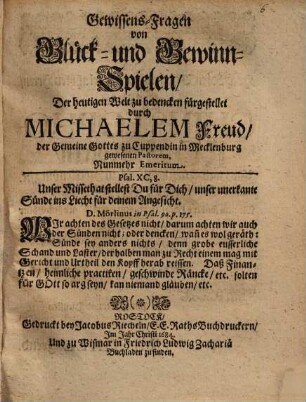 Gewissens-Fragen
von
Glück- und Gewinn-
Spielen/
Der heutigen Welt zu bedencken fürgestellet
durch
MICHAELEM Freud/
der Gemeine Gottes zu Cuppendin in Mecklenburg
gewesenen Pastorem,
Nunmehr Emeritum.
Psal. XC, 8.
Unser Missethat stellest Du für Dich/ unser unerkante
Sünde ins Liecht für deinem Angesicht.
D. Mörlinus in Psal. 90. p. 175.
WIr achten des Gesetzes nicht/ darum achten wir auch
der Sünden nicht/ oder dencken/ was es wol gerath:
Sünde sey anders nichts/ denn grobe eusserliche
Schand und Laster/ derhalben man zu Recht einem mag mit
Gericht und Urtheil den Kopff herab reissen. Daß Finan-
tzen/ heimliche practiken/ geschwinde Räncke/ etc. solten
für GOtt so arg seyn/ kan niemand gläuben/ etc.
ROSTOCK/
Gedruckt bey Jacobus Riecheln/ E. E. Raths Buchdruckern/
Im Jahr Christi 1684.
Und zu Wismar in Friedrich Ludwig Zachariä
Buchladen zu finden.